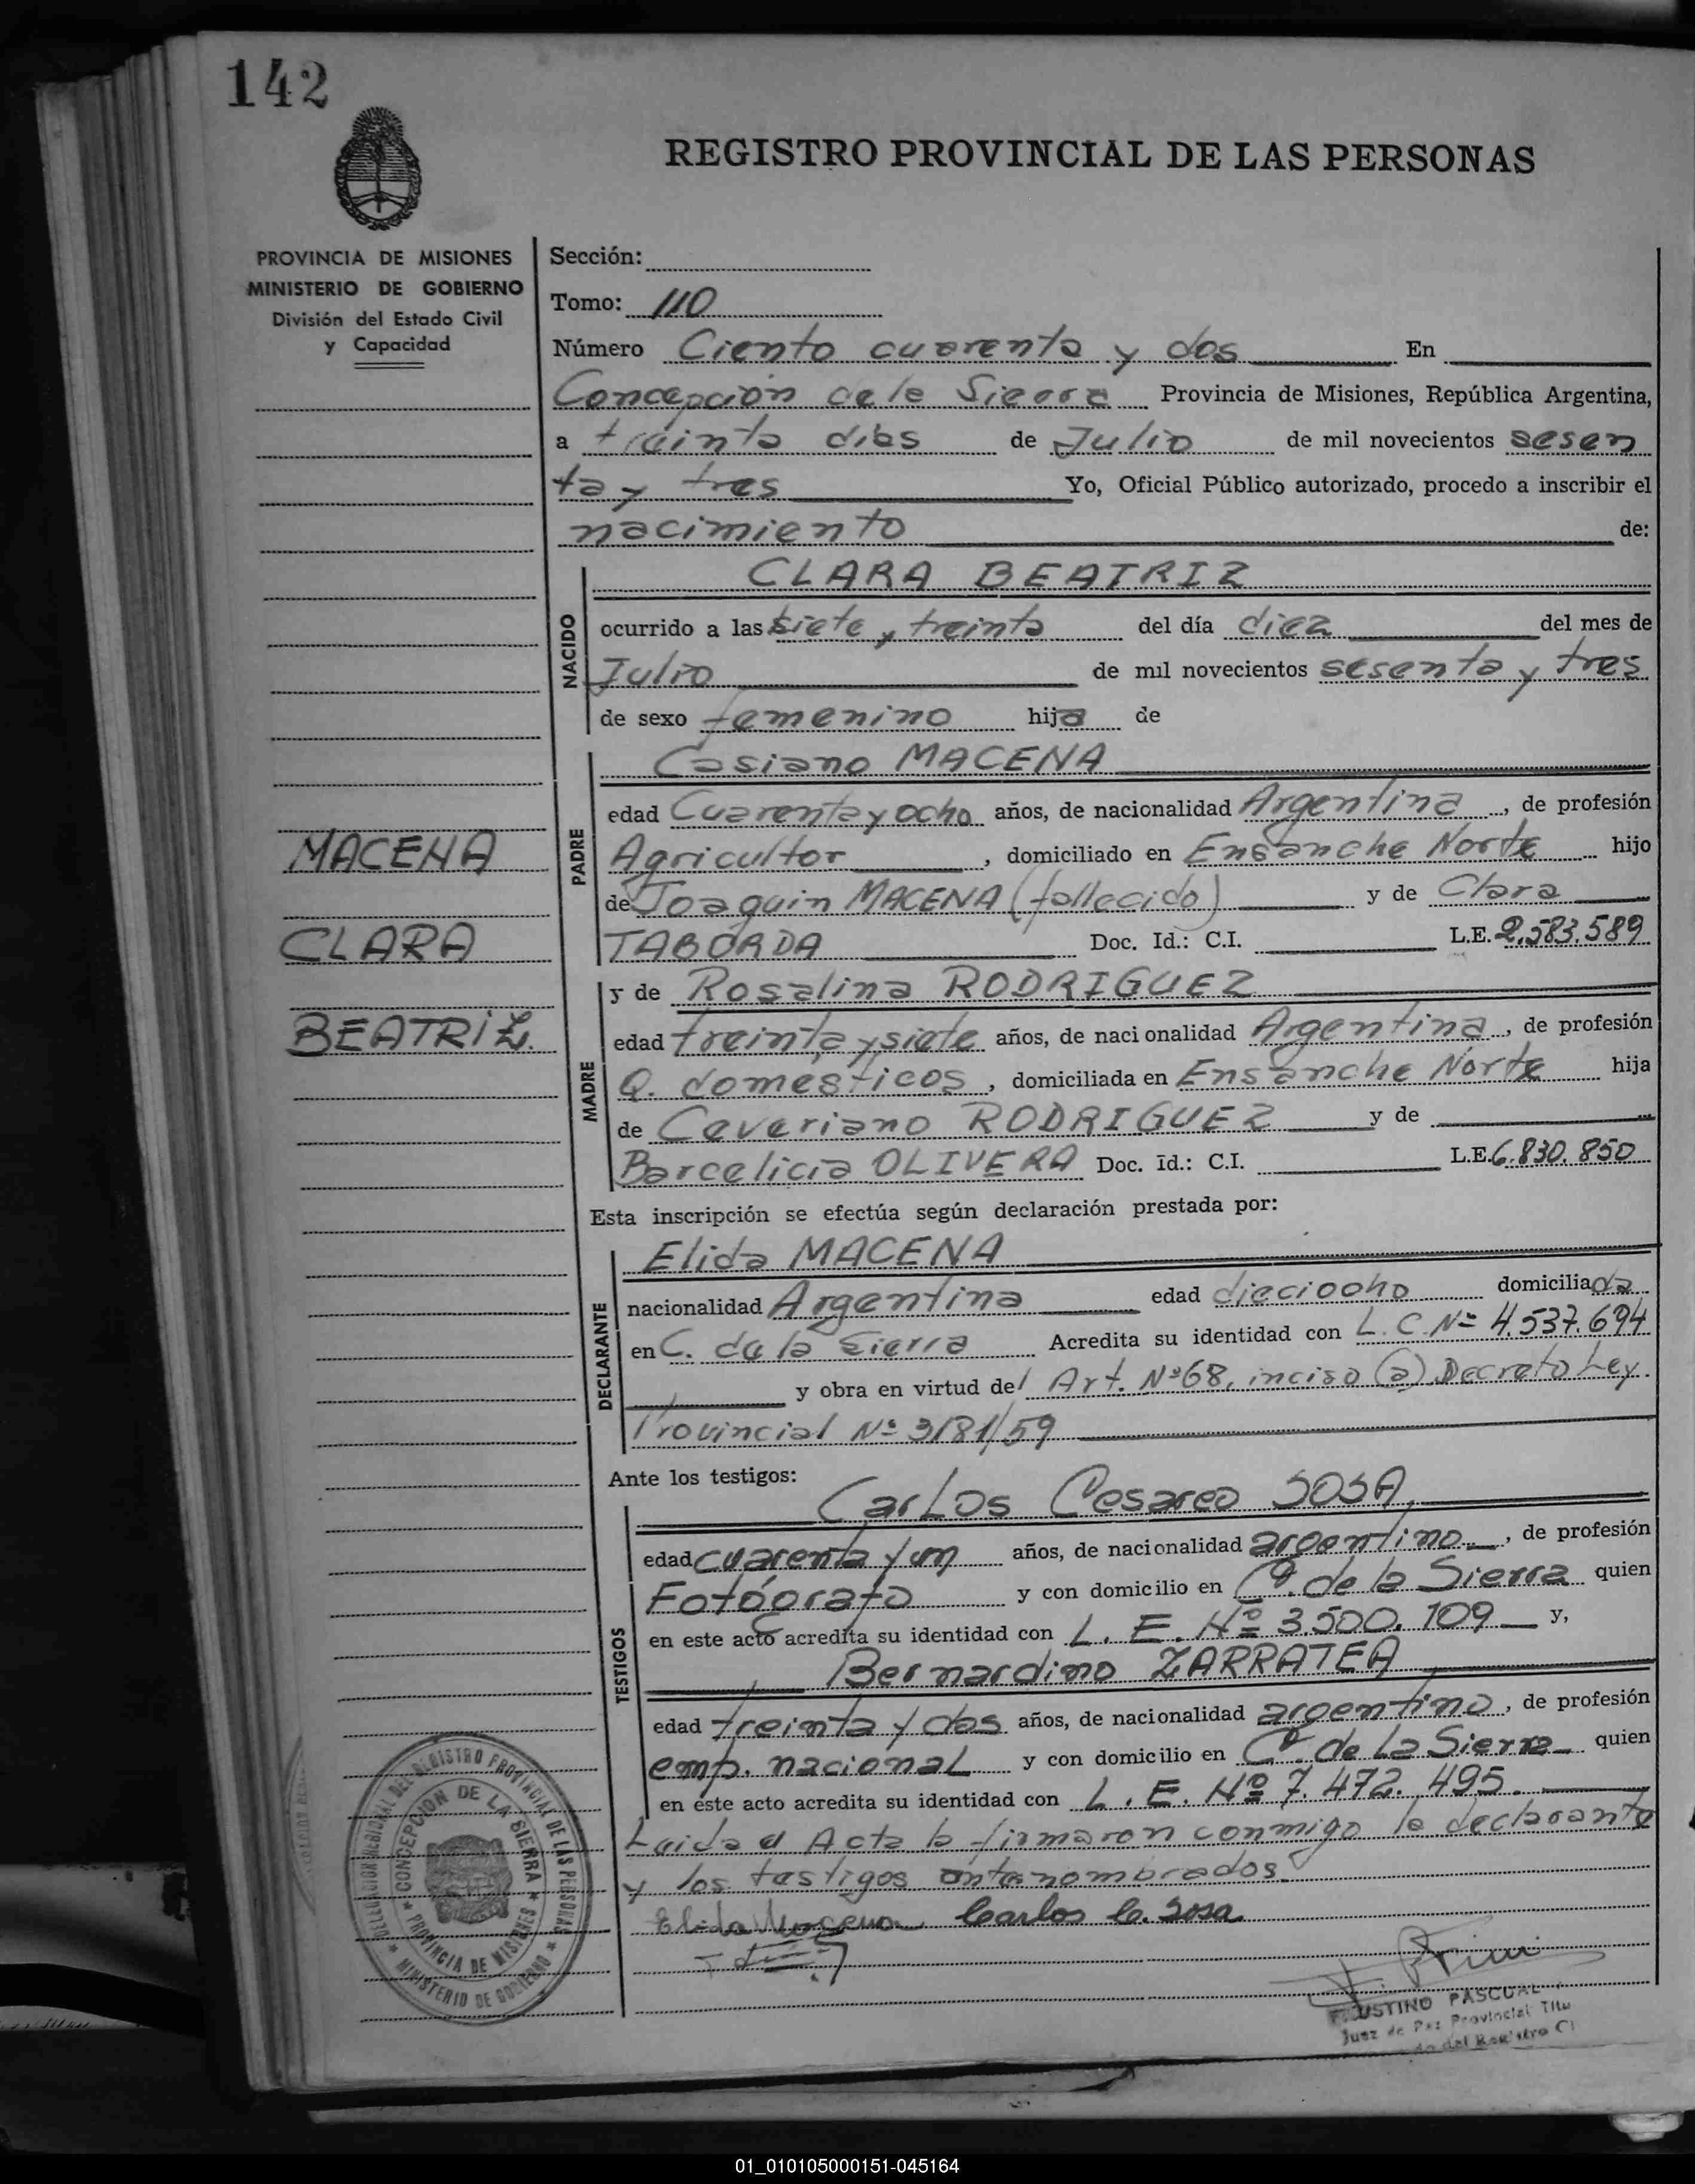 142
REGISTRO PROVINCIAL DE LAS PERSONAS
PROVINCIA DE MISIONES
MINISTERIO DE GOBIERNO
División del Estado Civil
y Capacidad
MACENA
CLARA
BEATRIZ.
Sección:
Tomo: 110
Número Ciento cuarenta y dos En
Concepción de la Sierra Provincia de Misiones, República Argentina,
a treinta días de Julio de mil novecientos sesen
ta y tres Yo, Oficial Público autorizado, procedo a inscribir el
nacimiento de:
NACIDO
CLARA BEATRIZ
ocurrido a las siete y treinta del día diez del mes de
Julio de mil novecientos sesenta y tres
de sexo femenino hija de
PADRE
Casiano MACENA
edad Cuarenta y ocho años, de nacionalidad Argentina, de profesión
Agricultor, domiciliado en Ensanche Norte hijo
de Joaquin MACENA (fallecido) y de Clara
TABORDA Doc. Id.: C.I. L.E. 2.583.589
MADRE
y de Rosalina RODRIGUEZ
edad treinta y siete años, de nacionalidad Argentina, de profesión
Q. domésticos, domiciliada en Ensanche Norte hija
de Ceveriano RODRIGUEZ y de
Barcelicia OLIVERA Doc. Id.: C.I. L.E. 6.830.850
Esta inscripción se efectúa según declaración prestada por:
DECLARANTE
Elida MACENA
nacionalidad Argentina edad dieciocho domiciliada
en C. de la Sierra Acredita su identidad con L.C. Nº 4.537.694
y obra en virtud del Art. Nº 68, inciso (a) Decreto Ley
Provincial Nº 3181/59
Ante los testigos:
TESTIGOS
Carlos Cesareo SOSA,
edad cuarenta y un años, de nacionalidad argentino, de profesión
Fotógrafo y con domicilio en Cº. de la Sierra quien
en este acto acredita su identidad con L. E. Nº 3.500.109 y,
Bernardino ZARRATEA
edad treinta y dos años, de nacionalidad argentino, de profesión
emp. nacional y con domicilio en Cº. de La Sierra quien
en este acto acredita su identidad con L. E. Nº 7.472.495.
Leida el Acta la firmaron conmigo la declarante
y los testigos antenombrados.
Elida Macena Carlos C. Sosa
DELEGACION REGIONAL DEL REGISTRO PROVINCIAL DE LAS PERSONAS
MINISTERIO DE GOBIERNO
CONCEPCION DE LA SIERRA
PROVINCIA DE MISIONES
FAUSTINO PASCUAL
Juez de Paz Provincial Titu
del Registro Ci
01_010105000151-045164